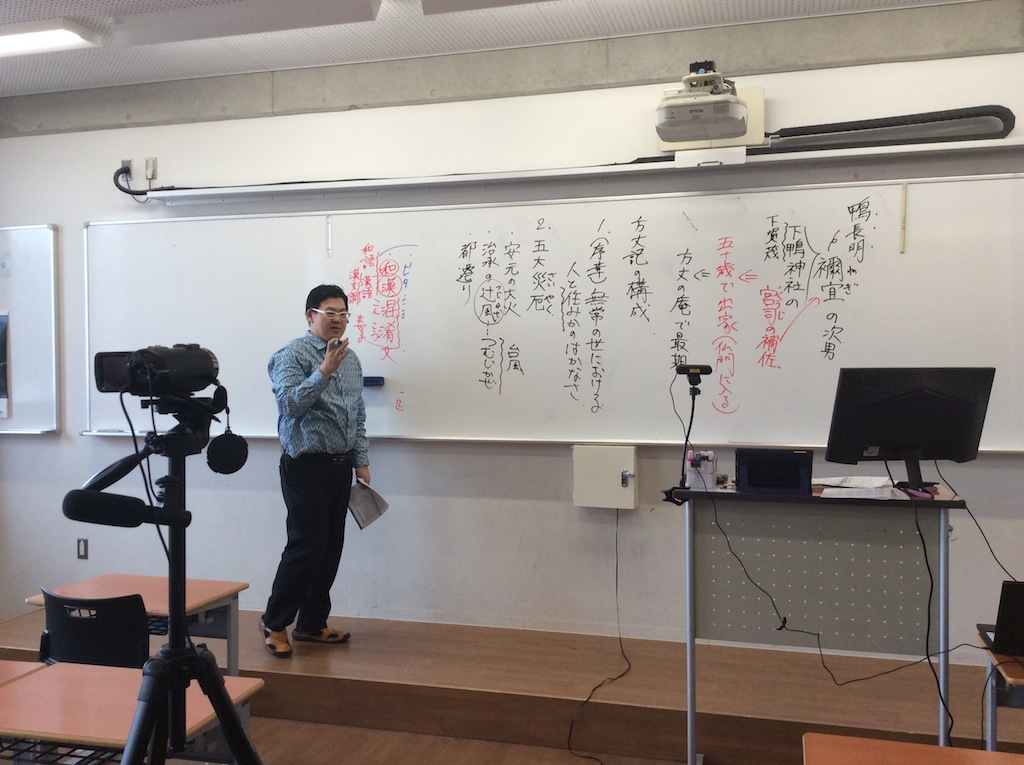 鴨長明
禰宜の次男
ねぎ
下鴨神社の
下賀茂
宮司の補佐
五十歳で出家(仏門に入る)
方丈の庵で最期
方丈記の構成
1.(序章)無常の世における
人と住みかのはかなさ
2.五大災厄
さいやく
安元の大火
治承の辻風-つむじかぜ
つじかぜ
台風
都遷り
和漢混淆文
和語
漢語
EPSON